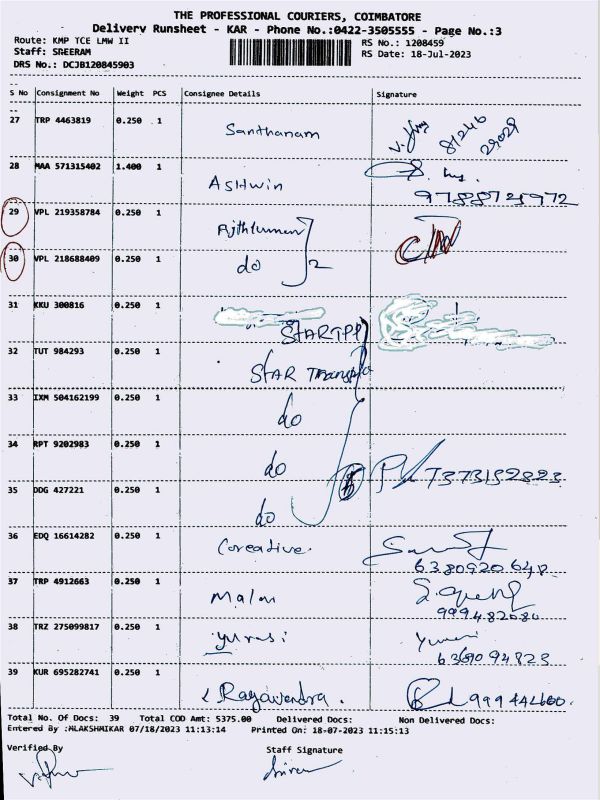 THE PROFESSIONAL COURIERS, COIMBATORE
Delivery Runsheet - KAR - Phone No.:0422-3505555 - Page No.:3
Route: KMP TCE LMW II
RS No.: 1208459
Staff: SREERAM
RS Date: 18-Jul-2023
DRS No.: DCJB120845903
S No Consignment No Weight PCS Consignee Details Signature
27 TRP 4463819 0.250 1 Santhanam
28 MAA 571315402 1.400 1 Ashwin
29 VPL 219358784 0.250 1
30 VPL 218688409 0.250 1 do 2
31 KKU 300816 0.250 1 STARTPP
32 TUT 984293 0.250 1 STAR
33 IXM 504162199 0.250 1 do
34 RPT 9202983 0.250 1 do 7373152823
35 DDG 427221 0.250 1 do
36 EDQ 16614282 0.250 1 Coreative. 6380920648
37 TRP 4912663 0.250 1 Malar
38 TRZ 275099817 0.250 1 yurasi 6369094823
39 KUR 695282741 0.250 1 Ragavendra.
Total No. Of Docs: 39 Total COD Amt: 5375.00 Delivered Docs: Non Delivered Docs:
Entered By :MLAKSHMIKAR 07/18/2023 11:13:14 Printed On: 18-07-2023 11:15:13
Verified By Staff Signature